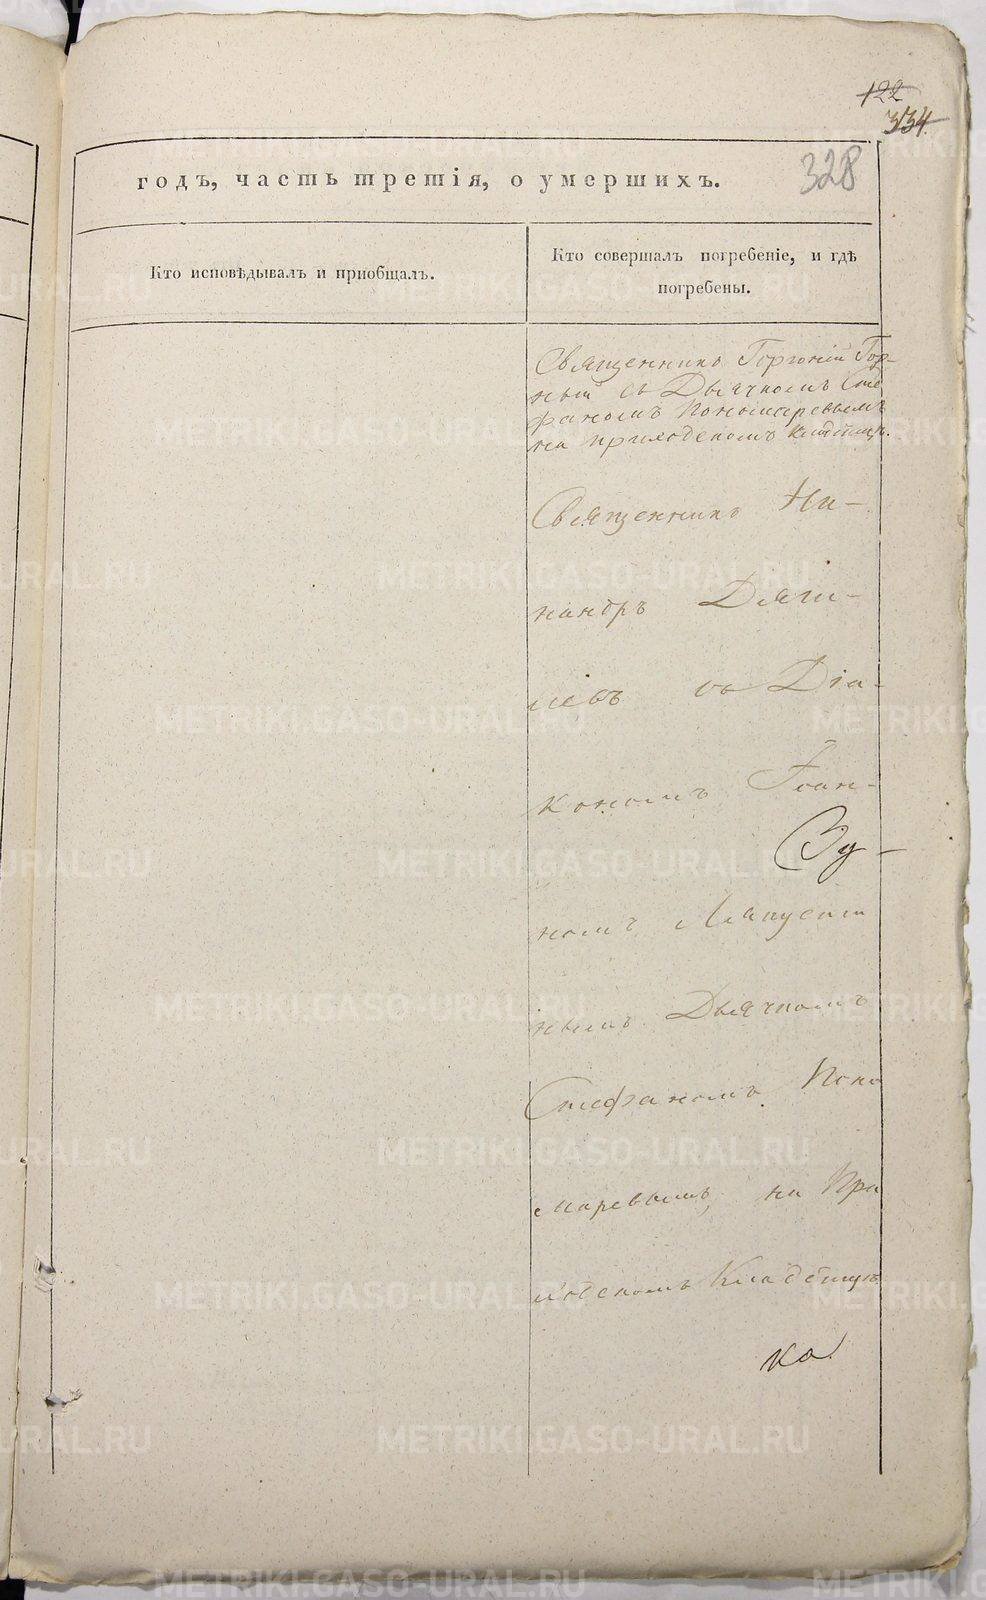 122
334.
328
годъ, часть третія, о умершихъ.
Кто исповѣдывалъ и пріобщалъ.
Кто совершалъ погребеніе, и гдѣ
погребены.
Священникъ Горгоній Гор-
ный съ Дьячкомъ Сте
фаномъ Пономаревымъ
на приходскомъ кладбищѣ.
Священникъ Ни-
кандръ Дяги-
левъ съ Діа-
кономъ Іоан-
Зу-
номъ Ляпусти
нымъ Дьячкомъ
Стефаномъ Поно
маревымъ, на При
ходскомъ Кладбищѣ
ка.
METRIKI.GASO-URAL.RU